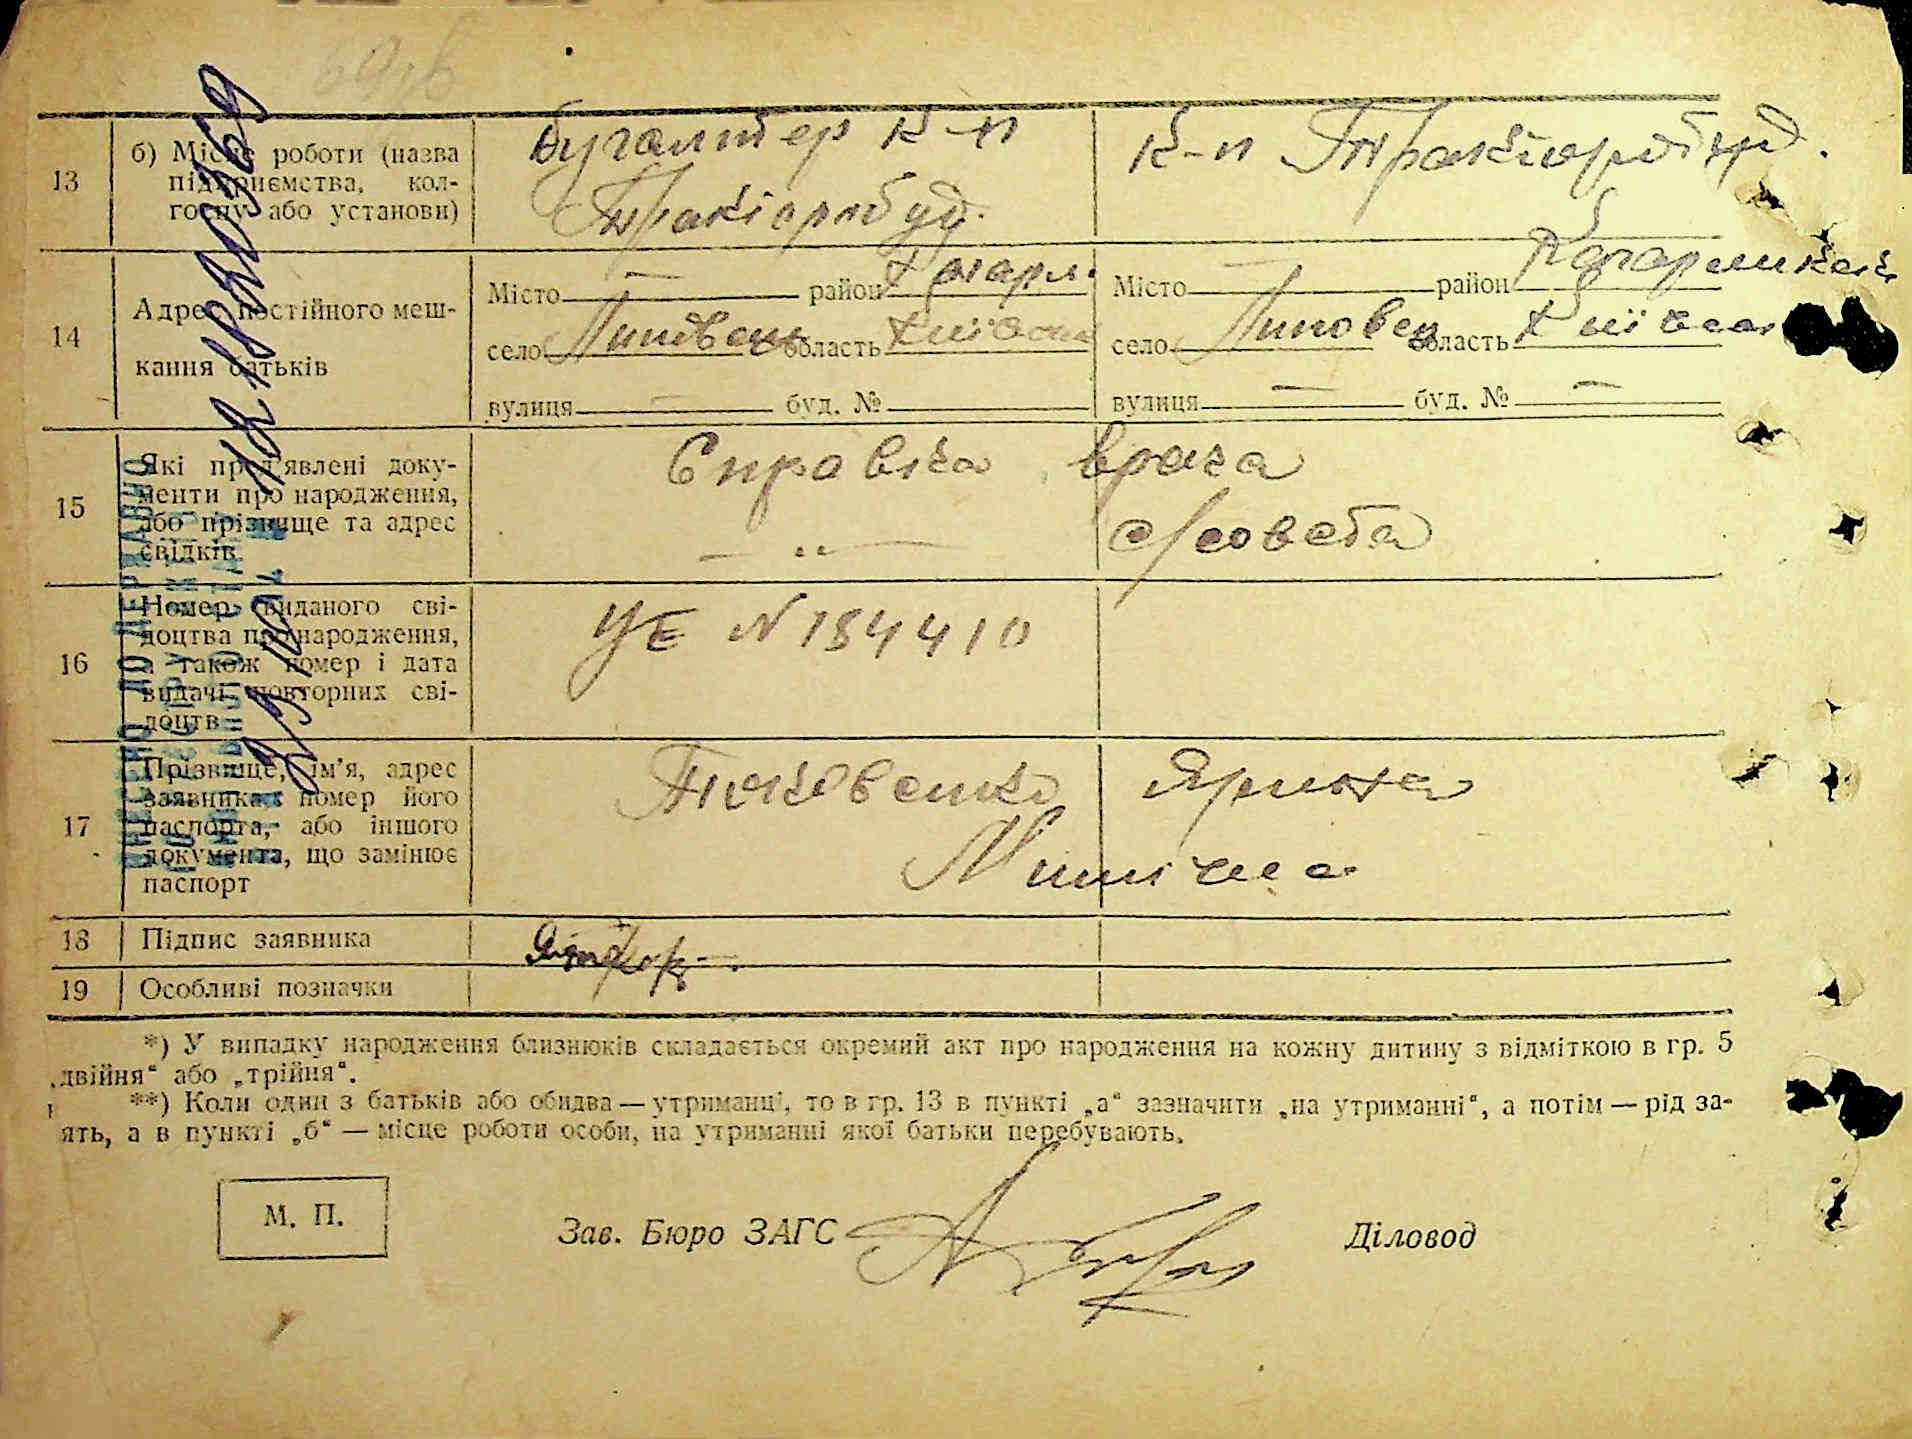 13
б) Місце роботи (назва
підприємства, кол-
госпу або установи)
Бугалтер к-п
к-п
14
Адрес постійного меш-
кання батьків
Місто — район Кагарл.
село Липовець область Київськ
вулиця — буд. №
Місто — район Кагарлицьк
село Липовец область Київськ
вулиця — буд. № —
15
Які пред'явлені доку-
менти про народження,
або прізвище та адрес
свідків
Справка врача
— „ — с/совета
16
Номер виданого сві-
доцтва про народження,
а також номер і дата
видачі повторних сві-
доцтв
УЕ № 184410
17
Прізвище, ім'я, адрес
заявника, номер його
паспорта, або іншого
документа, що замінює
паспорт
Ярина
18
Підпис заявника
19
Особливі позначки
ВНЕСЕНО ДО ДЕРЖАВНО
*) У випадку народження близнюків складається окремий акт про народження на кожну дитину з відміткою в гр. 5
„двійня“ або „трійня“.
**) Коли один з батьків або обидва — утриманці, то в гр. 13 в пункті „а“ зазначити „на утриманні“, а потім — рід за-
ять, а в пункті „б“ — місце роботи особи, на утриманні якої батьки перебувають.
М. П.
Зав. Бюро ЗАГС
Діловод